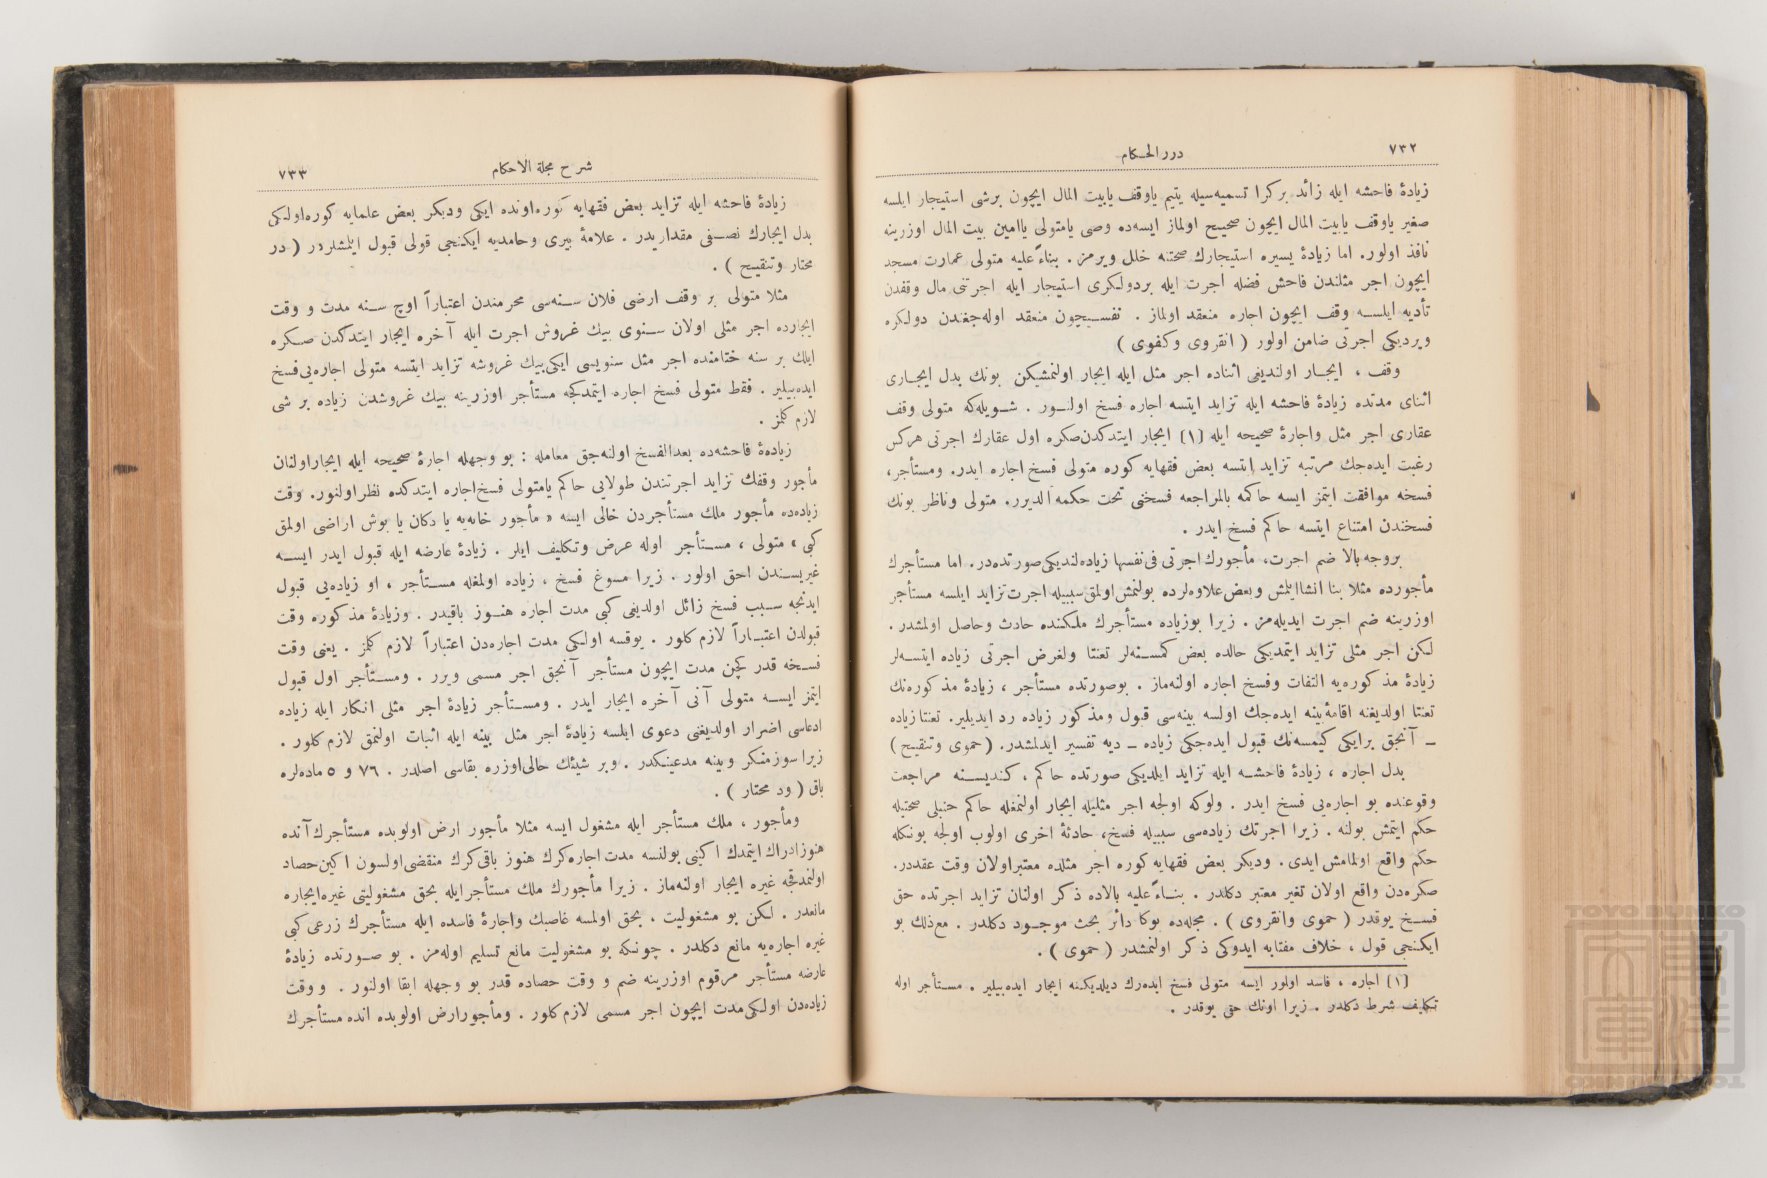 ٧٣٢
درر الحكام
زيادۀ فاحشه ايله زائد بركرا تسميه‌سيله يتيم ياوقف يابيت المال ايچون برشى استيجار ايلسه
صغير ياوقف يابيت المال ايچون صحيح اولماز ايسه‌ده وصى يامتولى ياامين بيت المال اوزرينه
نافذ اولور. اما زيادۀ يسيره استيجارك صحتنه خلل ويرمز . بناءً عليه متولى عمارت مسجد
ايچون اجر مثلندن فاحش فضله اجرت ايله بردولكرى استيجار ايله اجرتنى مال وقفدن
تأديه ايلسه وقف ايچون اجاره منعقد اولماز . نفسيچون منعقد اوله‌جغندن دولكره
ويرديكى اجرتى ضامن اولور ( انقروى وكفوى )
وقف ، ايجار اولنديغى اثناده اجر مثل ايله ايجار اولنمشيكن بونك بدل ايجارى
اثناى مدتده زيادۀ فاحشه ايله تزايد ايتسه اجاره فسخ اولنور . شويله‌كه متولى وقف
عقارى اجر مثل واجارۀ صحيحه ايله [١] ايجار ايتدكدن‌صكره اول عقارك اجرتى هركس
رغبت ايده‌جك مرتبه تزايد ايتسه بعض فقهايه كوره متولى فسخ اجاره ايدر. ومستأجر،
فسخه موافقت ايتمز ايسه حاكمه بالمراجعه فسخنى تحت حكمه آلديرر. متولى وناظر بونك
فسخندن امتناع ايتسه حاكم فسخ ايدر .
بروجه بالا ضم اجرت، مأجورك اجرتى فى نفسها زياده‌لنديكى صورتده‌در. اما مستأجرك
مأجورده مثلا بنا انشا ايتمش وبعض علاوه‌لرده بولنمش اولمق سببيله اجرت تزايد ايلسه مستأجر
اوزرينه ضم اجرت ايديله‌مز . زيرا بوزياده مستأجرك ملكنده حادث وحاصل اولمشدر.
لكن اجر مثلى تزايد ايتمديكى حالده بعض كمسنه‌لر تعنتا ولغرض اجرتى زياده ايتسه‌لر
زيادۀ مذكوره‌يه التفات وفسخ اجاره اولنه‌ماز . بوصورتده مستأجر ، زيادۀ مذكوره‌نك
تعنتا اولديغنه اقامۀ بينه ايده‌جك اولسه بينه‌سى قبول ومذكور زياده رد ايديلير. تعنتا زياده
ـ آنجق برايكى كيمسه‌نك قبول ايده‌جكى زياده ـ ديه تفسير ايدلمشدر. (حموى وتنقيح )
بدل اجاره ، زيادۀ فاحشه ايله تزايد ايلديكى صورتده حاكم ، كنديسنه مراجعت
وقوعنده بو اجاره‌يى فسخ ايدر . ولوكه اولجه اجر مثليله ايجار اولنمغله حاكم حنبلى صحتيله
حكم ايتمش بولنه . زيرا اجرتك زياده‌سى سببيله فسخ، حادثۀ اخرى اولوب اولجه بونكله
حكم واقع اولمامش ايدى . وديكر بعض فقهايه كوره اجر مثلده معتبر اولان وقت عقددر.
صكره‌دن واقع اولان تغير معتبر دكلدر . بناءً عليه بالاده ذكر اولنان تزايد اجرتده حق
فسخ يوقدر ( حموى وانقروى ) . مجله‌ده بوكا دائر بحث موجود دكلدر . مع ذلك بو
ايكنجى قول ، خلاف مفتابه ايدوكى ذكر اولنمشدر ( حموى ) .
[١] اجاره ، فاسد اولور ايسه متولى فسخ ايده‌رك ديلديكنه ايجار ايده‌بيلير . مستأجر اوله
تكليف شرط دكلدر . زيرا اونك حقى يوقدر .
شرح مجلة الاحكام
٧٣٣
زيادۀ فاحشه ايله تزايد بعض فقهايه كوره‌اونده ايكى وديكر بعض علمايه كوره‌اولكى
بدل ايجارك نصفى مقداريدر . علامۀ بيرى وحامديه ايكنجى قولى قبول ايلمشلردر ( در
مختار وتنقيح ) .
مثلا متولى بر وقف ارضى فلان سنه‌سى محرمندن اعتباراً اوچ سنه مدت و وقت
ايجارده اجر مثلى اولان سنوى بيك غروش اجرت ايله آخره ايجار ايتدكدن صكره
ايلك بر سنه ختامنده اجر مثل سنويسى ايكى بيك غروشه تزايد ايتسه متولى اجاره‌يى فسخ
ايده‌بيلير . فقط متولى فسخ اجاره ايتمدكجه مستأجر اوزرينه بيك غروشدن زياده بر شى
لازم كلمز .
زيادۀ فاحشه‌ده بعدالفسخ اولنه‌جق معامله : بو وجهله اجارۀ صحيحه ايله ايجار اولنان
مأجور وقفك تزايد اجرتندن طولايى حاكم يامتولى فسخ اجاره ايتدكده نظر اولنور. وقت
زياده‌ده مأجور ملك مستأجردن خالى ايسه « مأجور خانه‌يه يا دكان يا بوش اراضى اولمق
كبى » متولى ، مستأجر اوله عرض وتكليف ايلر . زيادۀ عارضه ايله قبول ايدر ايسه
غيريسندن احق اولور . زيرا مسوغ فسخ ، زياده اولمغله مستأجر ، او زياده‌يى قبول
ايدنجه سبب فسخ زائل اولديغى كبى مدت اجاره هنوز باقيدر . وزيادۀ مذكوره وقت
قبولدن اعتباراً لازم كلور . يوقسه اولكى مدت اجاره‌دن اعتباراً لازم كلمز . يعنى وقت
فسخه قدر كچن مدت ايچون مستأجر آنجق اجر مسمى ويرر . ومستأجر اول قبول
ايتمز ايسه متولى آنى آخره ايجار ايدر . ومستأجر زيادۀ اجر مثلى انكار ايله زياده
ادعاسى اضرار اولديغنى دعوى ايلسه زيادۀ اجر مثل بينه ايله اثبات اولنمق لازم كلور .
زيرا سوز منكر وبينه مدعينكدر . وبر شيئك حالى اوزره بقاسى اصلدر . ٧٦ و ٥ ماده‌لره
باق ( رد محتار ) .
ومأجور ، ملك مستأجر ايله مشغول ايسه مثلا مأجور ارض اولوبده مستأجرك آنده
هنوز ادراك ايتمدك اكينى بولنسه مدت اجاره كرك هنوز باقى كرك منقضى اولسون اكين حصاد
اولنمدقجه غيره ايجار اولنه‌ماز . زيرا مأجورك ملك مستأجر ايله بحق مشغوليتى غيره ايجاره
مانعدر . لكن بو مشغوليت ، بحق اولمسه غاصبك واجارۀ فاسده ايله مستأجرك زرعى كبى
غيره اجاره‌يه مانع دكلدر . چونكه بو مشغوليت مانع تسليم اوله‌مز . بو صورتده زيادۀ
عارضه مستأجر مرقوم اوزرينه ضم و وقت حصاده قدر بو وجهله ابقا اولنور . ووقت
زياده‌دن اولكى مدت ايچون اجر مسمى لازم كلور . ومأجور ارض اولوبده انده مستأجرك
TOYO BUNKO